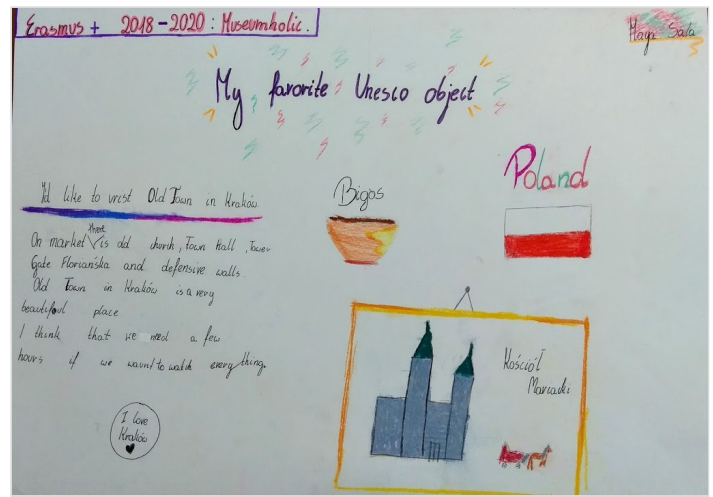 Erasmus + 2018-2020: Museumholic.
Maya Sala
My favorite Unesco object
Poland
I'd like to vist Old Town in Kraków
Bigos
On market there is old church, Town Hall, Tower
Gate Floriańska and defensive walls.
Old Town in Kraków is a very
beautifoul place
I think that we need a few
hours if we waunt to watch everything.
Kościół
Mariacki
I love
Kraków